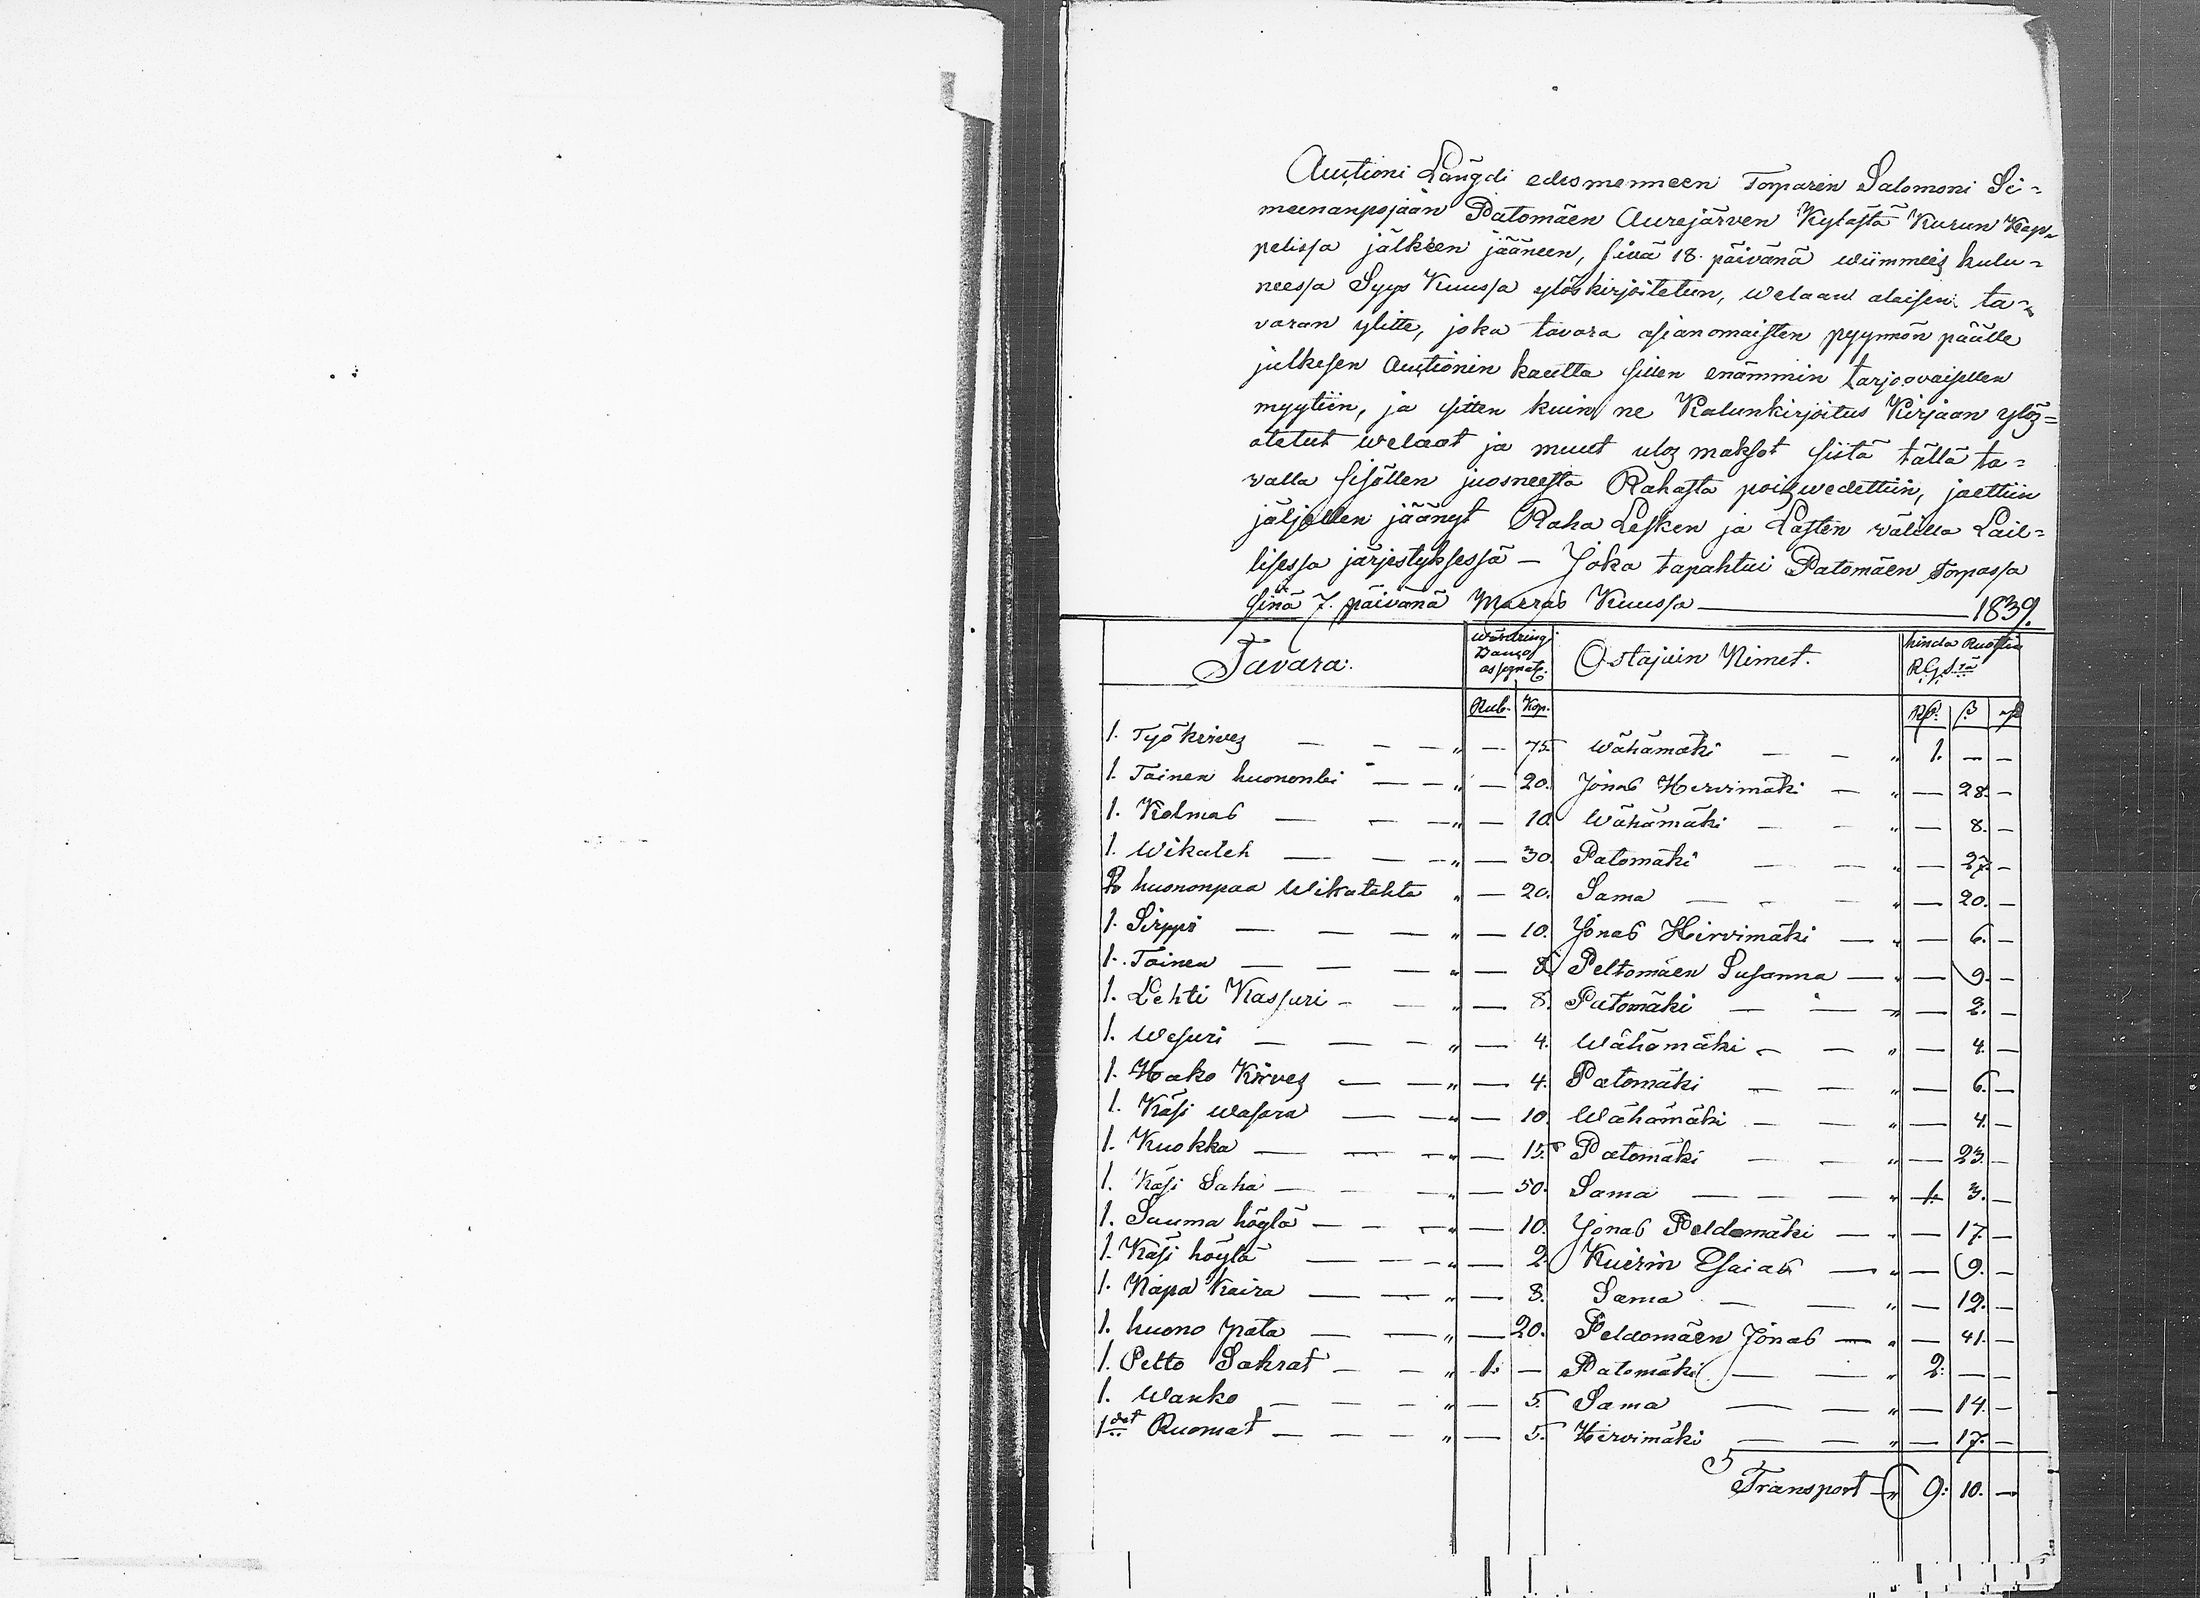 Auctioni Längdi edesmenneen Torparin Salomoni Si=
meenanpojaan Patomäen Aurejärven Kylästä Kurun Kap=
pelissa jälkeen jääneen, sinä 18. päivänä wiimmeiz kulu=
neessa Syys Kuussa ylöskirjoitetun, welaan alaisen ta=
varan ylitte, joka tavara asianomaisten pyynnön päälle
julkesen Auctionin kautta sillen enämmin tarjoovaisellen
myytiin, ja sitten kuin ne Kalunkirjoitus Kirjaan ylöz=
otetut welaat ja muut uloz maksot siitä tällä ta=
walla sisällen juosneesta Rahasta poiz wedettiin, jaettiin
jäljellen jäänyt Raha Lesken ja Lasten wälillä Lail=
lisessa järjestyksessä — Joka tapahtui Patomäen Torpassa
sinä 7. päivänä Marras Kuussa — 1839.
Tavara. Wärdering Banco assignat. Ostajain Nimet. hinda Ruotin R.G.S:rä
Rub. Kop. Rg. β. rp
1. Työ kirvez — — — " — 75. Wähämäki — — " 1. — —
1. Toinen huononbi — — " — 20. Jonas Hirvimäki — " — 28. —
1. Kolmas — — — " — 10. Wähämäki — — " — 8. —
1. Wikateh — — — " — 30. Patomäki — — " — 27. —
2 huononpaa Wikatehta " — 20. Sama — — — " — 20. —
1. Sirppi — — — — " — 10. Jonas Hirvimäki — " — 6. —
1. Toinen — — — — " — 8. Peltomäen Susanna — " — 9. —
1. Lehti Kassari — — " — 8. Patomäki — — — " — 2. —
1. Wesuri — — — — " — 4. Wähämäki — — " — 4. —
1. Hako Kirvez — — " — 4. Patomäki — — " — 6. —
1. Käsi wasara — — " — 10. Wähämäki — — " — 4. —
1. Kuokka — — — — " — 15. Patomäki — — " — 23. —
1. Käsi Saha — — — " — 50. Sama — — — " 1. 3. —
1. Sauma höglä — — — " — 10. Jonas Peldomäki — " — 17. —
1. Käsi höylä — — — " — 2. Kuirin Esaias — " — 9. —
1. Napa Kaira — — " — 8. Sama — — " — 12. —
1. huono pata — — " — 20. Peldomäen Jonas — " — 41. —
1. Pelto Sahrat — — " 1. — Patomäki — — " 2. — —
1. Wanko — — — " — 5. Sama — — " — 14. —
1det Ruomat — — — " — 5. Hirvimäki — — " — 17. —
Transport " 9. 10. —